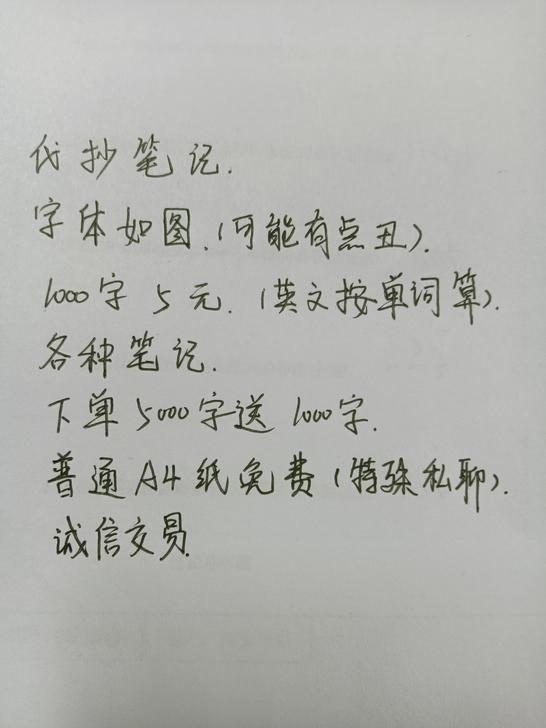 代抄笔记.
字体如图.(可能有点丑).
1000字 5元.(英文按单词算).
各种笔记.
下单5000字送1000字.
普通A4纸免费(特殊私聊).
诚信交易.